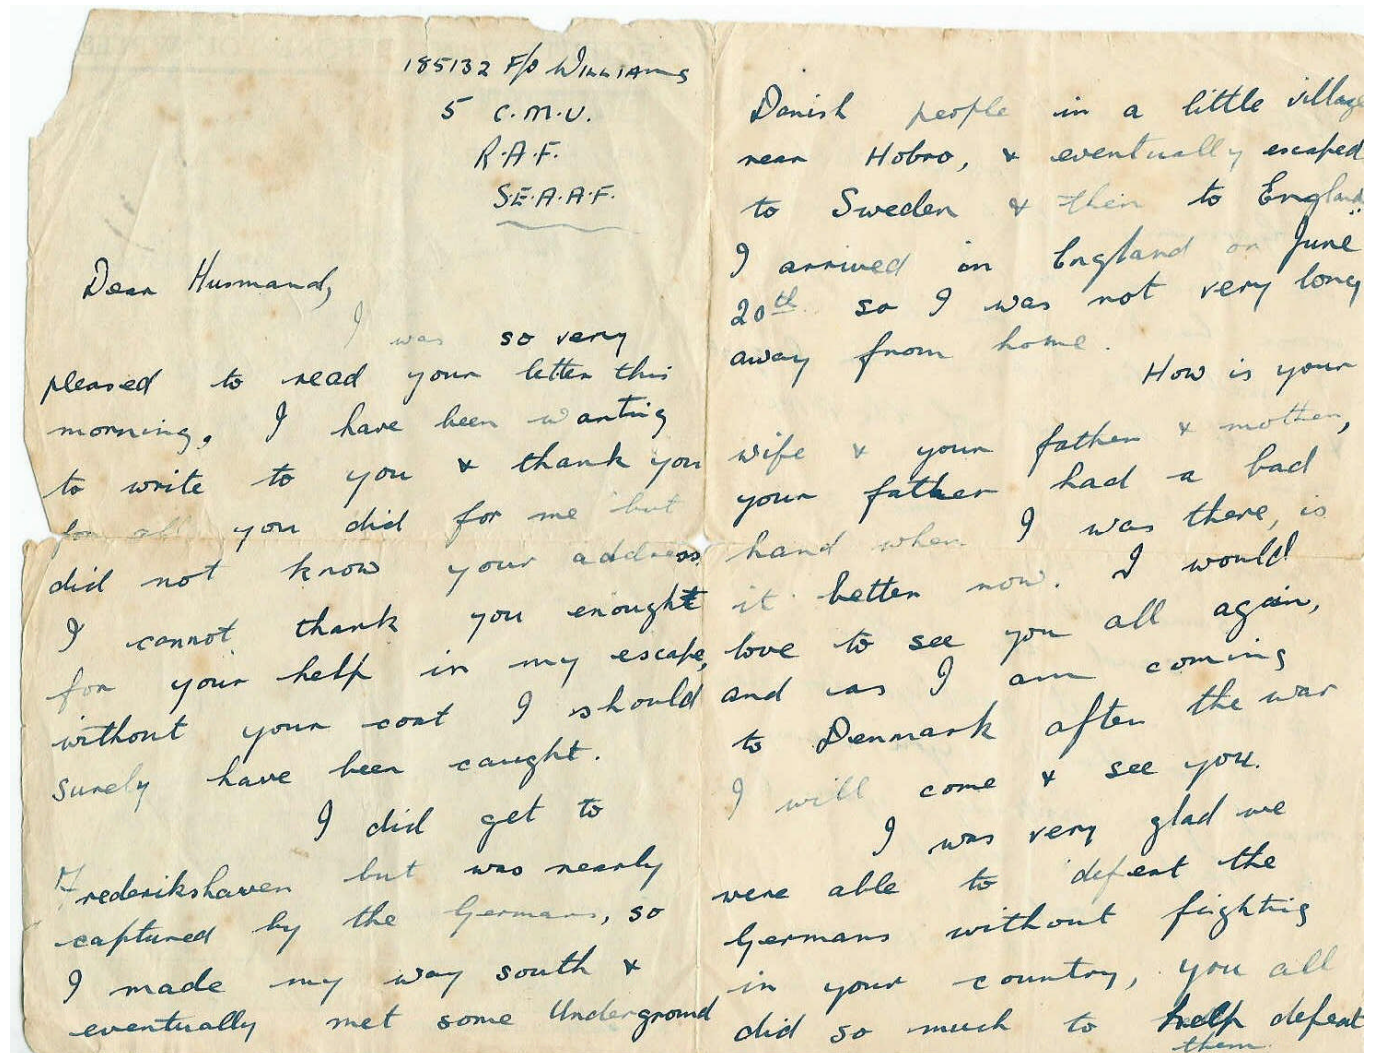 185132 F/O WILLIAMS
5 C.M.U.
R.A.F.
S.E.A.A.F.
Dear Husmand,
I was so very
pleased to read your letter this
morning, I have been wanting
to write to you & thank you
for all you did for me but
did not know your address
I cannot thank you enough
for your help in my escape,
without your coat I should
surely have been caught.
I did get to
Frederikshaven but was nearly
captured by the Germans, so
I made my way south &
eventually met some Underground
Danish people in a little village
near Hobro, & eventually escaped
to Sweden & then to England.
I arrived in England on June
20th so I was not very long
away from home.
How is your
wife & your father & mother,
your father had a bad
hand when I was there, is
it better now. I would
love to see you all again,
and as I am coming
to Denmark after the war
I will come & see you.
I was very glad we
were able to defeat the
Germans without fighting
in your country, you all
did so much to help defeat
them.